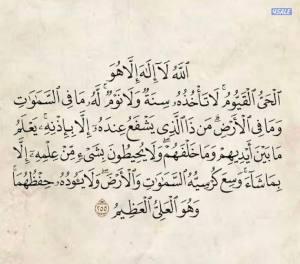 4SALE
ٱللَّهُ لَآ إِلَٰهَ إِلَّا هُوَ
ٱلْحَىُّ ٱلْقَيُّومُ ۚ لَا تَأْخُذُهُۥ سِنَةٌ وَلَا نَوْمٌ ۚ لَّهُۥ مَا فِى ٱلسَّمَٰوَٰتِ
وَمَا فِى ٱلْأَرْضِ ۗ مَن ذَا ٱلَّذِى يَشْفَعُ عِندَهُۥٓ إِلَّا بِإِذْنِهِۦ ۚ يَعْلَمُ
مَا بَيْنَ أَيْدِيهِمْ وَمَا خَلْفَهُمْ ۖ وَلَا يُحِيطُونَ بِشَىْءٍ مِّنْ عِلْمِهِۦٓ إِلَّا
بِمَا شَآءَ ۚ وَسِعَ كُرْسِيُّهُ ٱلسَّمَٰوَٰتِ وَٱلْأَرْضَ ۖ وَلَا يَـُٔودُهُۥ حِفْظُهُمَا ۚ
وَهُوَ ٱلْعَلِىُّ ٱلْعَظِيمُ ٢٥٥